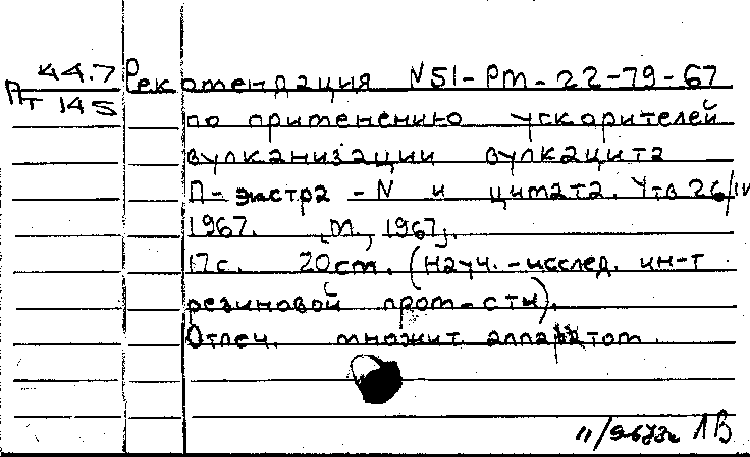 44.7 Рекомендация N51-РТ-22-79-67
Пт 145
по применению ускорителей
вулканизации вулкацита
П-экстра-N и цимата. Утв 26/IV
1967. М, 1967.
17с. 20см. (науч.-исслед. ин-т
резиновой пром-сти).
Отпеч. множит. аппаратом.
1В